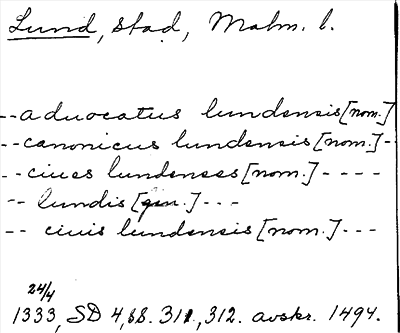 Lund, stad, Malm. l.
--aduocatus lundensis [nom.]
--canonicus lundensis [nom.]-
--ciues lundenses [nom.]----
-- lundis [gen.]---
-- ciuis lundensis [nom.]---
24/4
1333, SD 4, s. 311, 312. avskr. 1494.